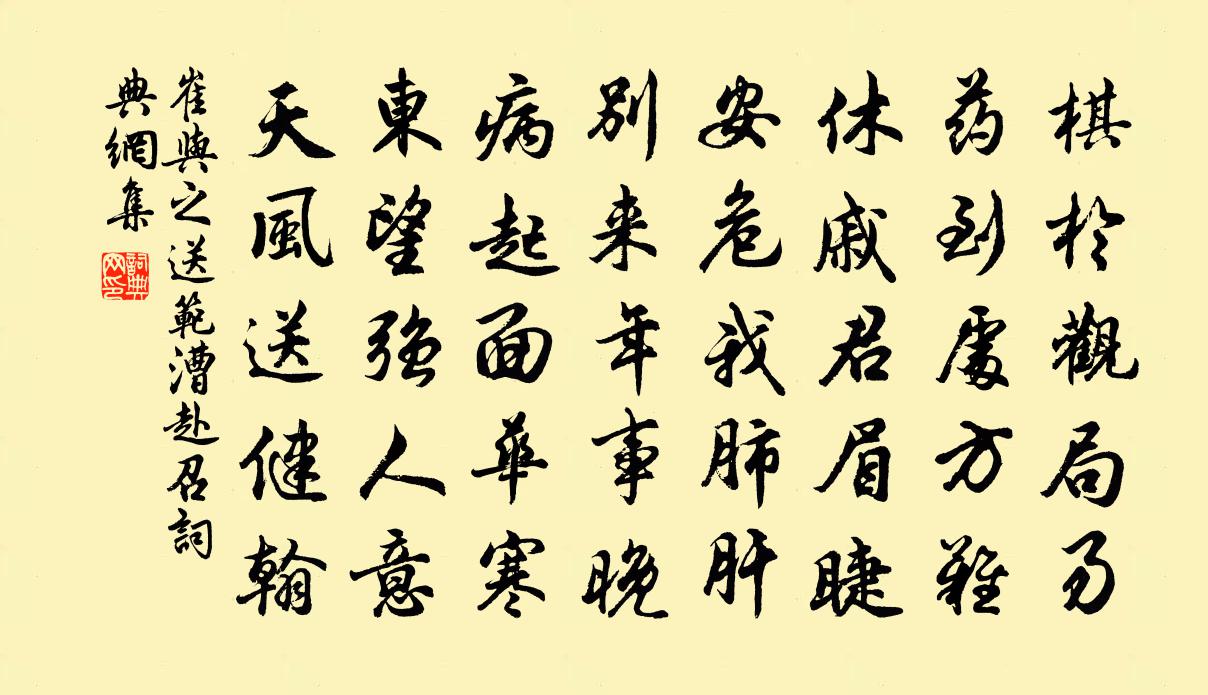 棋於觀局易
药到處方難
休戚君眉睫
安危我肺肝
別来年事晚
病起面華寒
東望强人意
天風送健翰
崔與之送範漕赴召詞
典網集
詞典网印